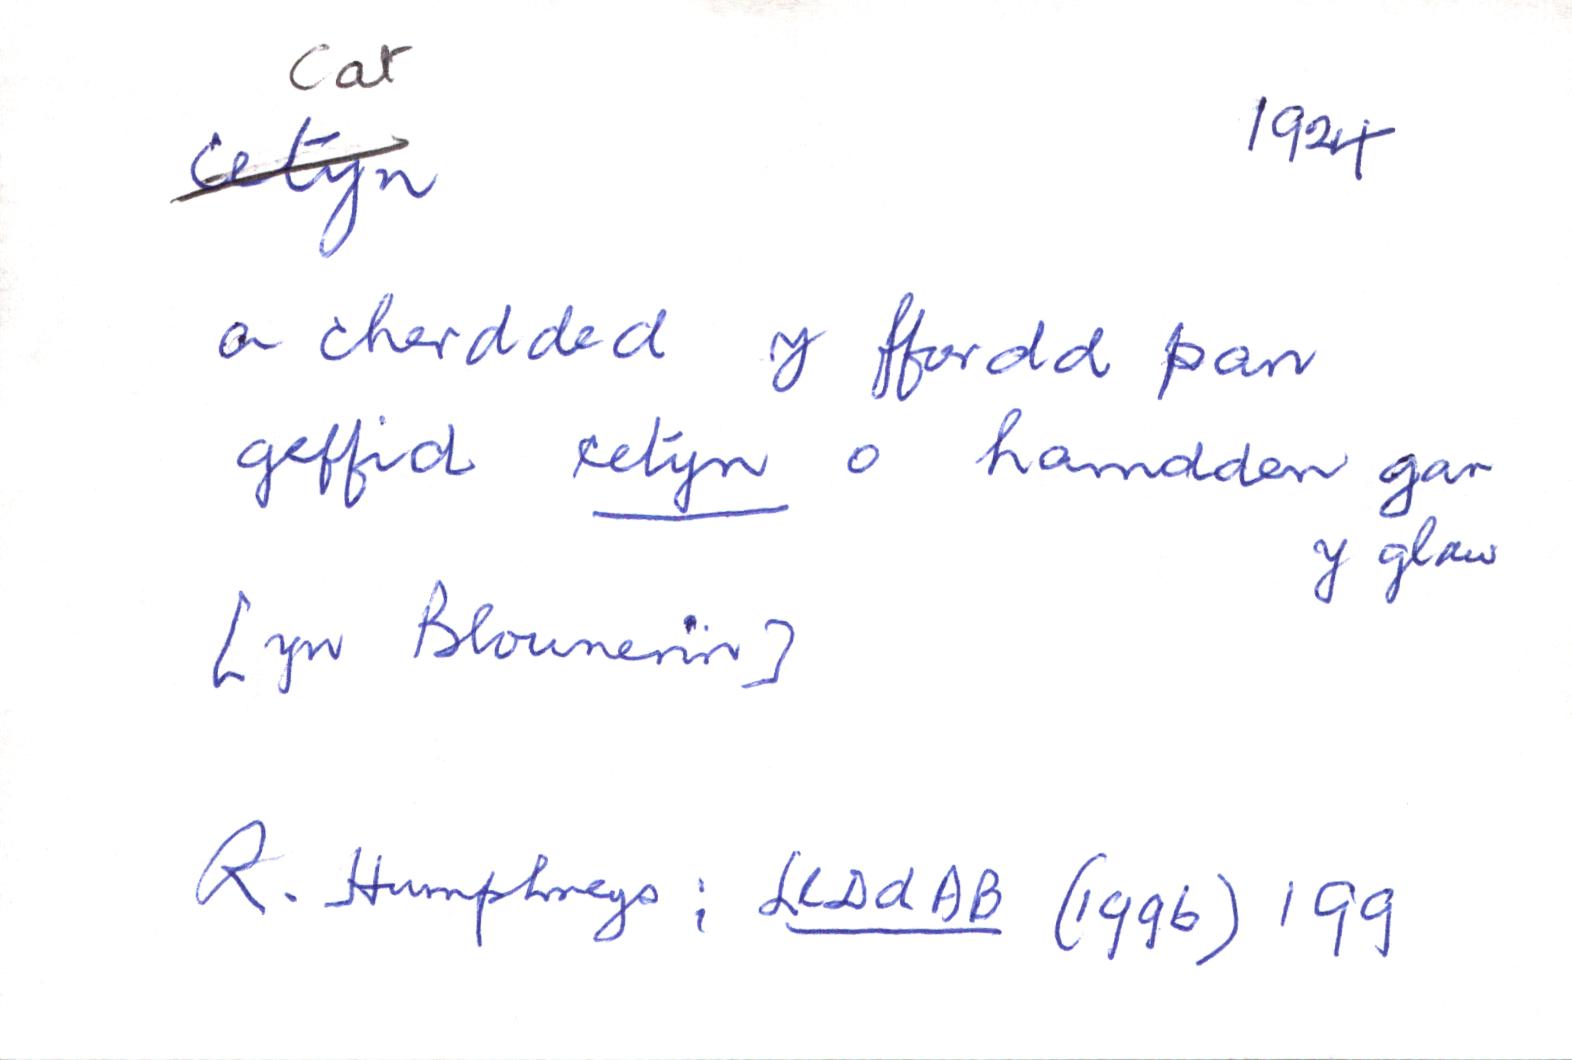 Cat
cetyn
1924
a cherdded y ffordd pan
geffid cetyn o hamdden gan
y glaw
[yn Blowneriïr]
R. Humphreys; LlDdAB (1996) 199